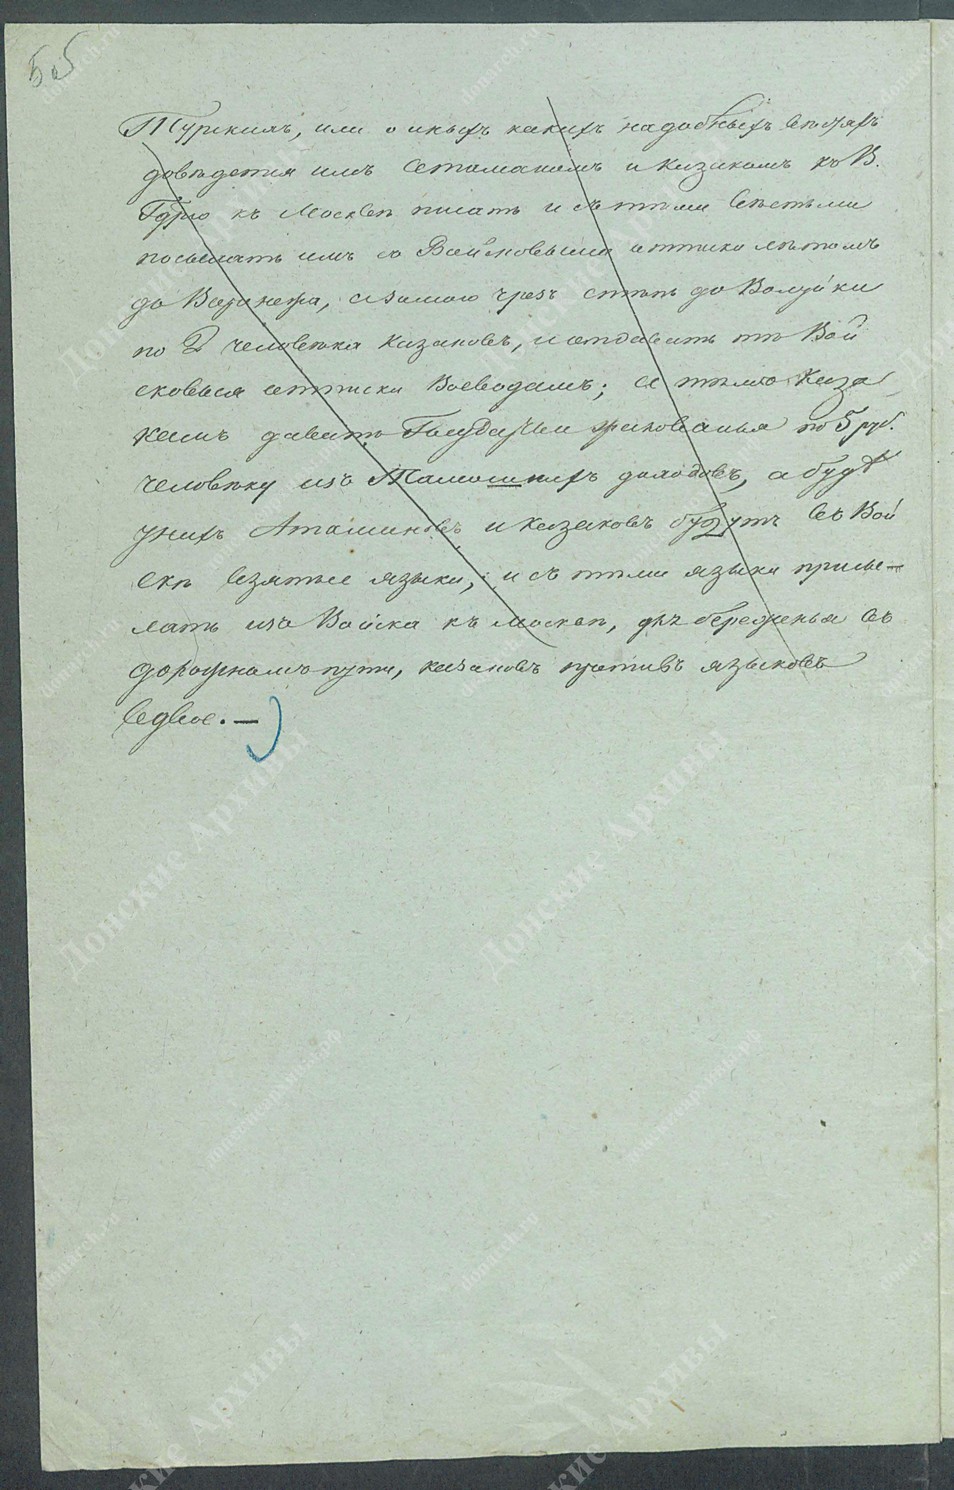 505
Турскихъ, или о иныхъ какихъ надобныхъ вѣстяхъ
довѣдется имъ Атаманомъ и Казакомъ къ В.
Гдрю къ Москвѣ писать и съ тѣми вѣстьми
посылать имъ со Войсковыми отписки лѣтомъ
до Воронежа, а зимою чрезъ степь до Валуйки
по 2 человѣка Казаковъ, и отдавать тѣ Вой
сковыя отписки Воеводамъ; а тѣмъ Каза
камъ давать Государева жалованья по 5 руб.
человѣку изъ Тамошнихъ доходовъ, а буде
у нихъ Атамановъ и Казаковъ будутъ въ Вой
скѣ взятые языки, и съ тѣми языки присы-
лать изъ Войска къ Москвѣ, для береженья въ
дорожномъ пути, казаковъ противъ языковъ
вдвое. —
Донские Архивы
donarch.ru
донскиеархивы.рф